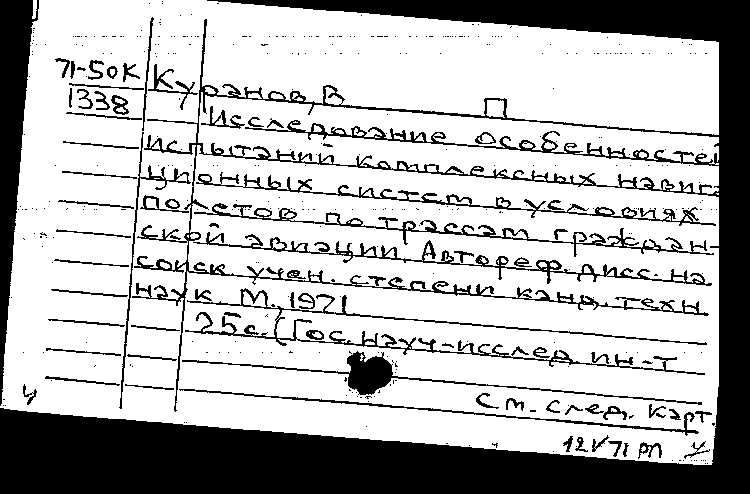 71-50К Куранов, В П
1338 Исследование особенностей
испытаний комплексных навига
ционных систем в условиях
полетов по трассам граждан-
ской авиации. Автореф. дисс. на
соиск. учен. степени канд. техн.
наук. М., 1971
25с. (Гос. науч-исслед. ин-т
См. след. карт.
12 V 71 рп